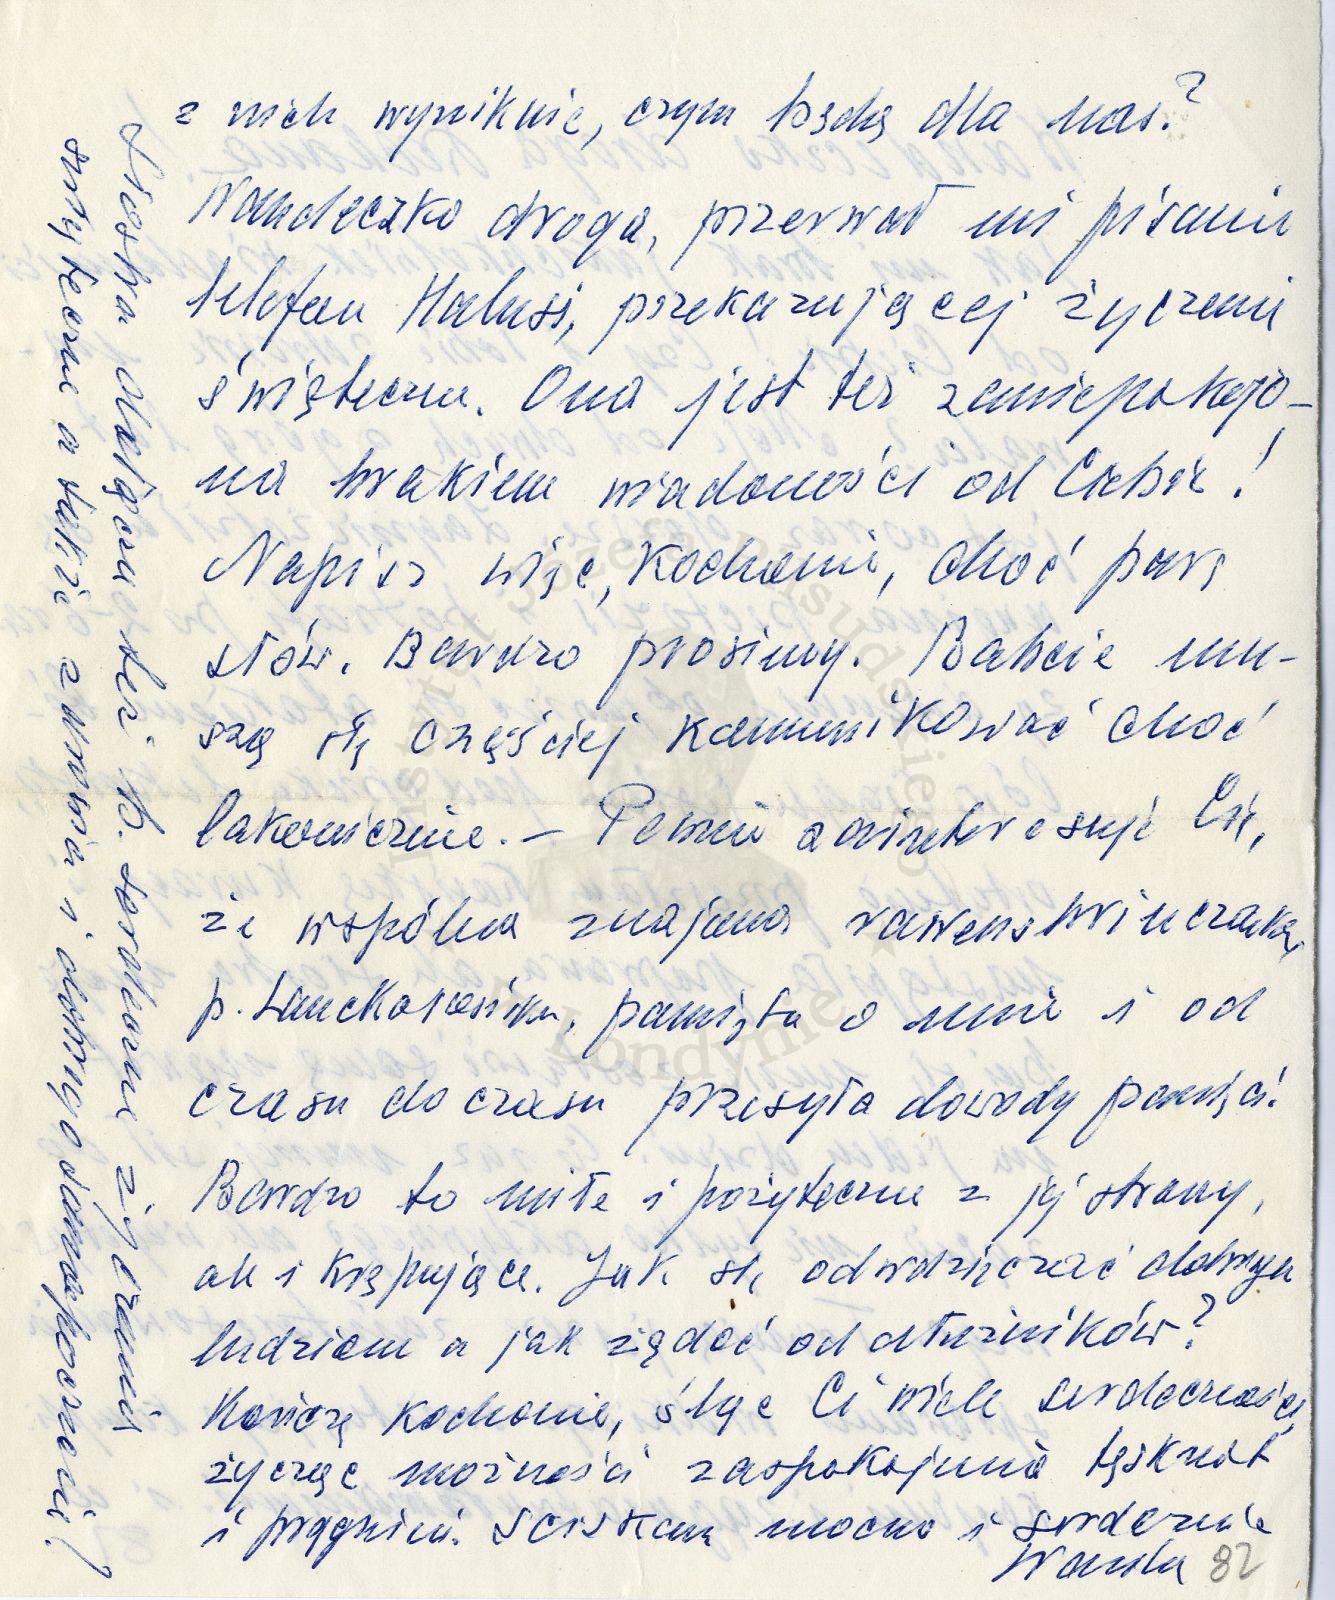 z nich wyniknie, czym będą dla nas?
Wandeczko droga, przerwał mi pisanie
telefon Halusi, przekazującej życzenia
świąteczne. Ona jest też zaniepokojo-
na brakiem wiadomości od Ciebie!
Napisz więc, Kochanie, choć parę
słów. Bardzo prosimy. Babcie mu-
szą się częściej komunikować choć
lakonicznie. – Pewnie zainteresuje Cię,
że wspólna znajoma rawensbrinczanka,
p. Lanckorońska, pamięta o mnie i od
czasu do czasu przesyła dowody pamięci.
Bardzo to miłe i pożyteczne z jej strony,
ale i krępujące. Jak się odwdzięczać dobrym
ludziom a jak żądać od dłużników?
Kończę kochanie, śląc Ci wiele serdeczności,
życząc możności zaspokojenia tęsknot
i pragnień. Ściskam mocno i serdecznie
Wanda 82
Siostra Małgora też b. serdeczne życzenia
świąteczne a także zdrowia i dobrego samopoczucia!
Instytut Józefa Piłsudskiego
w Londynie